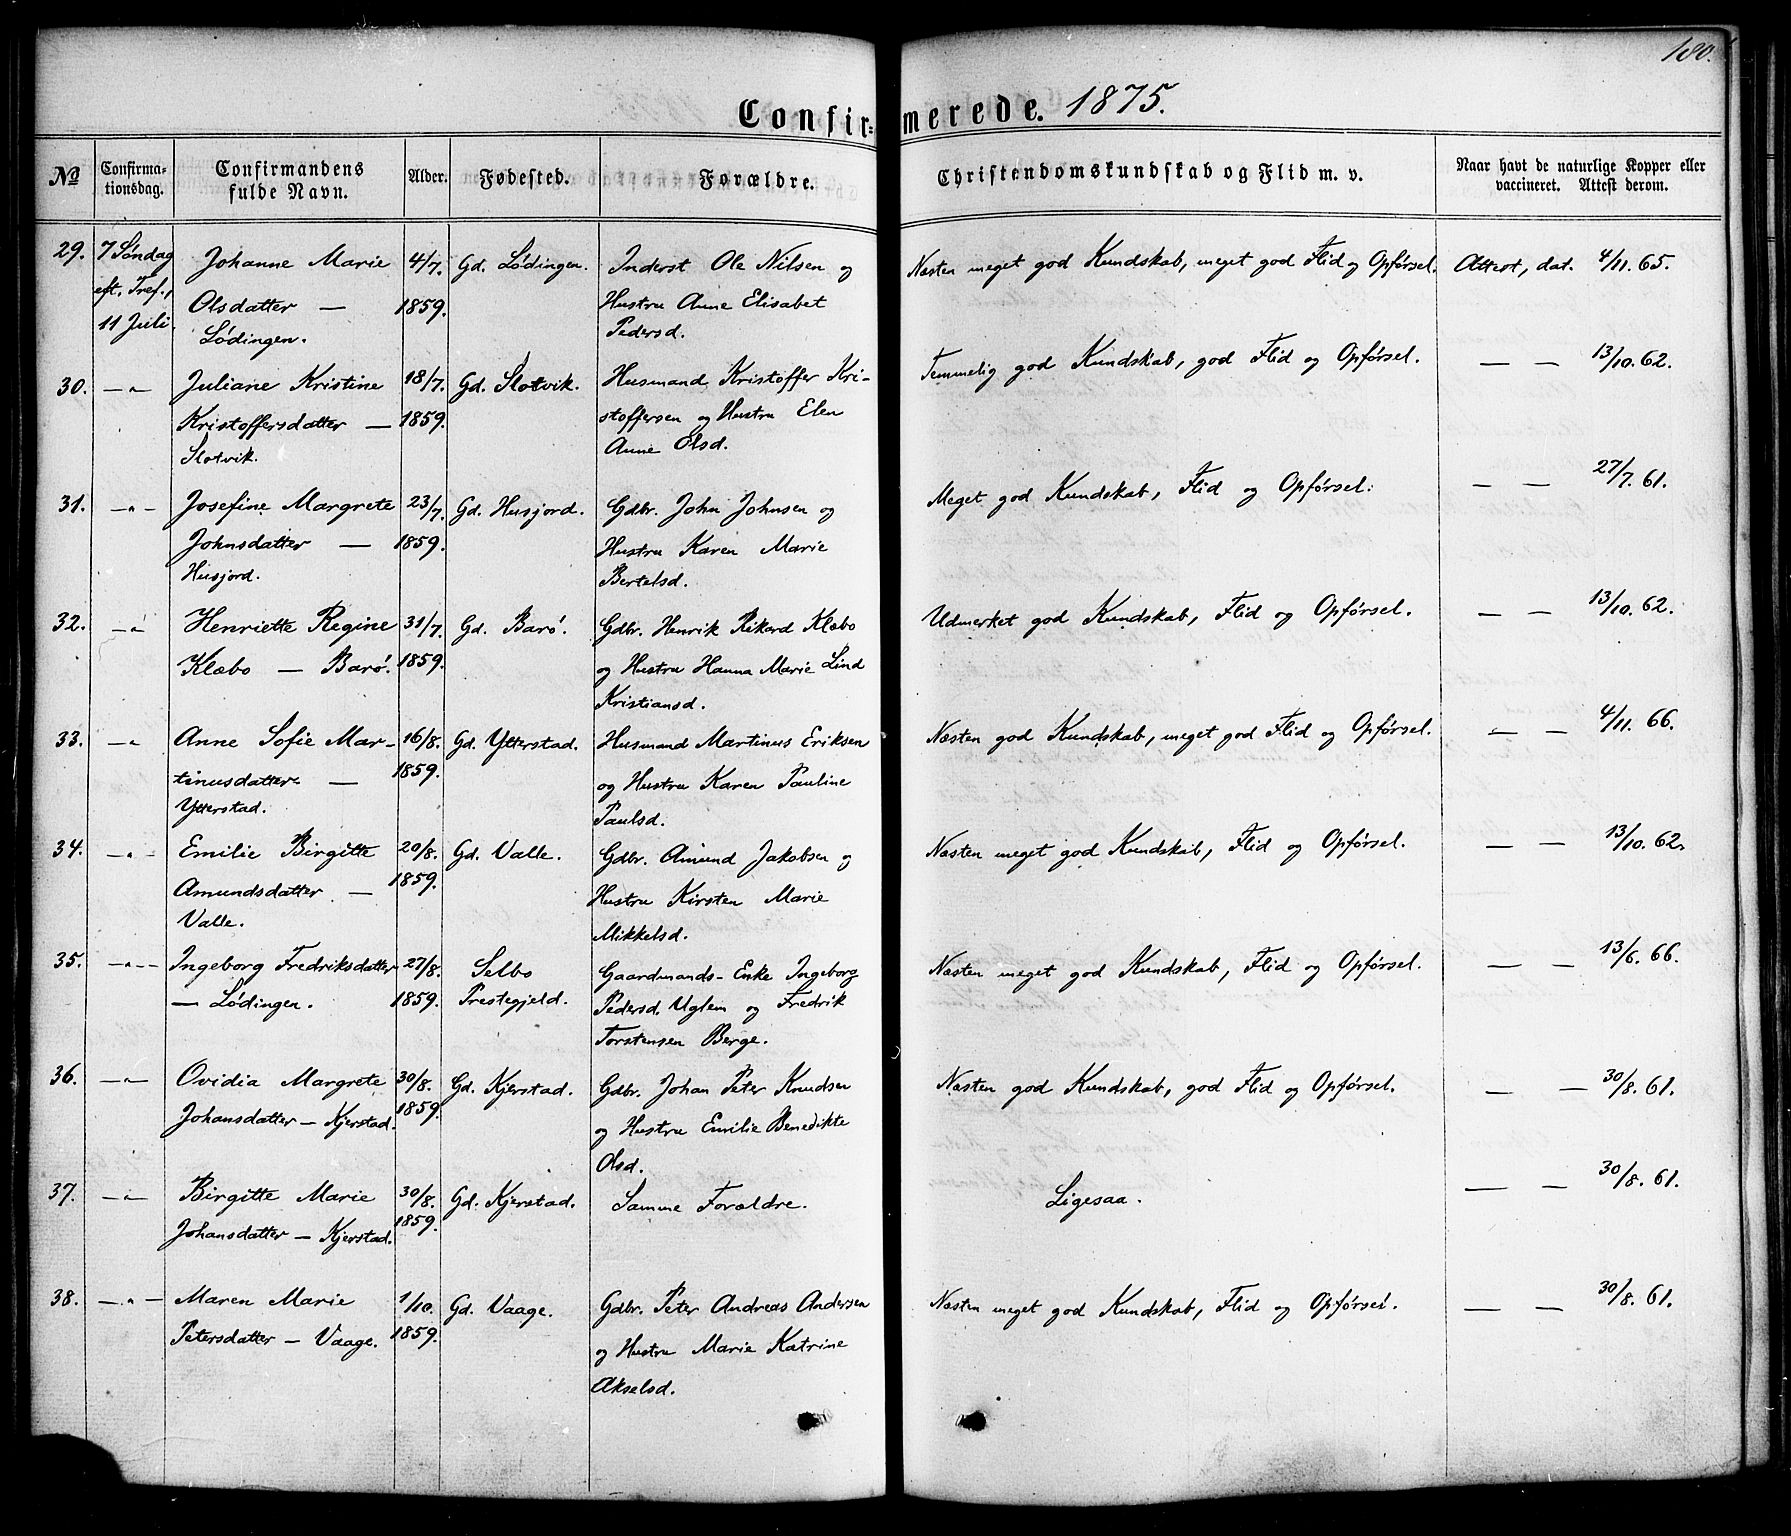 180.
Confirmerede. 1875.
No Confirmationsdag. Confirmandens fulde Navn. Alder. Fødested. Forældre. Christendomskundskab og Flid m. v. Naar havt de naturlige Kopper eller vaccineret. Attest derom.
29. 7 Søndag Johanne Marie 4/7. Gd. Lødingen. Inderst Ole Nilsen og Næsten meget god Kundskab, meget god Flid og Opførsel. Attest, dat. 4/11. 65.
eft. Tref., Olsdatter — 1859. Hustru Anne Elisabet
11 Juli. Lødingen. Pedersd.
30. —"— Juliane Kristine 18/7. Gd. Slotvik. Husmand Kristoffer Kri- Temmelig god Kundskab, god Flid og Opførsel. — — 13/10. 62.
Kristoffersdatter — 1859. stoffersen og Hustru Elen
Slotvik. Anne Olsd.
31. —"— Josefine Margrete 23/7. Gd. Husjord. Gdbr. John Johnsen og Meget god Kundskab, Flid og Opførsel. — — 27/7. 61.
Johnsdatter — 1859. Hustru Karen Marie
Husjord. Bertelsd.
32. —"— Henriette Regine 31/7. Gd. Barø. Gdbr. Henrik Rikard Klæbo Udmerket god Kundskab, Flid og Opførsel. — — 13/10. 62.
Klæbo — Barø. 1859. og Hustru Hanna Marie Lind
Kristiansd.
33. —"— Anne Sofie Mar- 16/8. Gd. Ytterstad. Husmand Martinus Eriksen Næsten god Kundskab, meget god Flid og Opførsel. — — 4/11. 66.
tinusdatter — 1859. og Hustru Karen Pauline
Ytterstad. Paulsd.
34. —"— Emilie Birgitte 20/8. Gd. Valle. Gdbr. Amund Jakobsen og Næsten meget god Kundskab, Flid og Opførsel. — — 13/10. 62.
Amundsdatter — 1859. Hustru Kirsten Marie
Valle. Mikkelsd.
35. —"— Ingeborg Fredriksdatter 27/8. Selbo Gaardmands-Enke Ingeborg Næsten meget god Kundskab, Flid og Opførsel. — — 13/6. 66.
— Lødingen. 1859. Prestegjeld. Pedersd. Uglem og Fredrik
Torstensen Berge.
36. —"— Ovidia Margrete 30/8. Gd. Kjerstad. Gdbr. Johan Peter Knudsen Næsten god Kundskab, god Flid og Opførsel. — — 30/8. 61.
Johansdatter — Kjerstad. 1859. og Hustru Emilie Benedikte
Olsd.
37. —"— Birgitte Marie 30/8. Gd. Kjerstad. Samme Forældre. Ligesaa. — — 30/8. 61.
Johansdatter — Kjerstad. 1859.
38. —"— Maren Marie 1/10. Gd. Vaage. Gdbr. Peter Andreas Andersen Næsten meget god Kundskab, Flid og Opførsel. — — 30/8. 61.
Petersdatter — Vaage. 1859. og Hustru Marie Katrine
Akselsd.